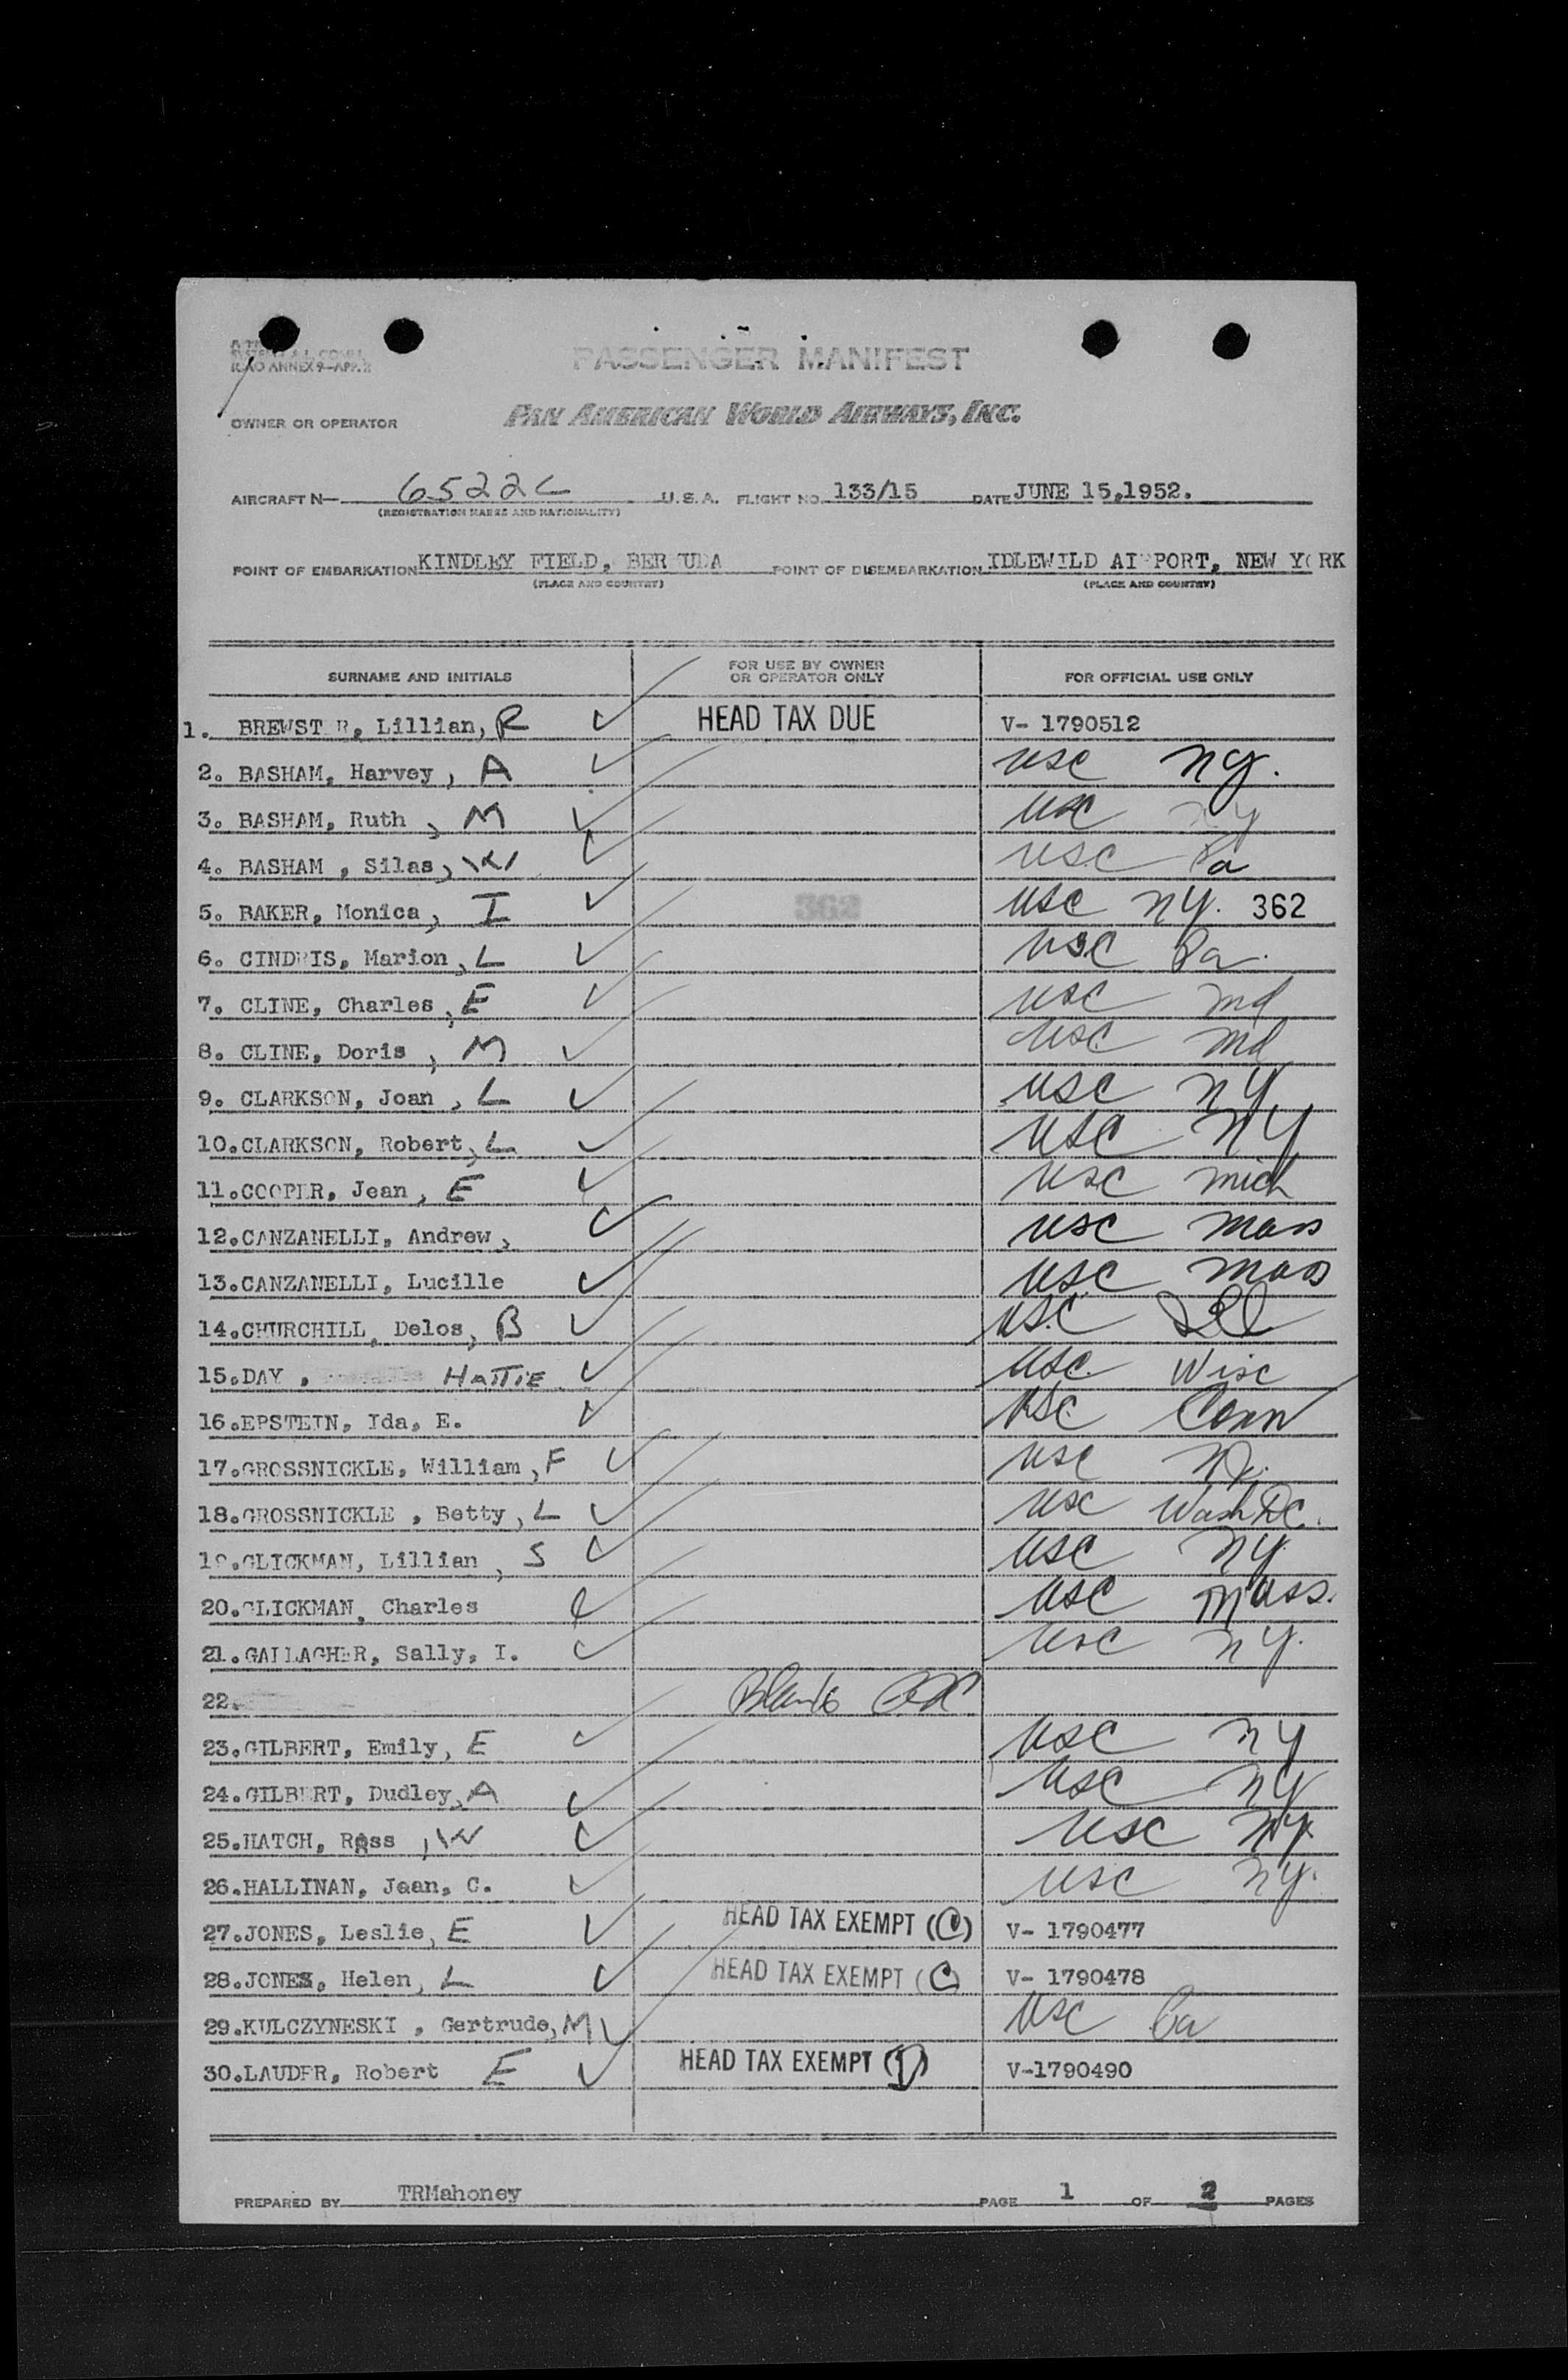 ICAO ANNEX 9-APP. 2
PASSENGER MANIFEST
OWNER OR OPERATOR PAN AMERICAN WORLD AIRWAYS, INC.
AIRCRAFT N— 6522C U.S.A. FLIGHT NO. 133/15 DATE JUNE 15,1952.
(REGISTRATION MARKS AND NATIONALITY)
POINT OF EMBARKATION KINDLEY FIELD, BERMUDA POINT OF DISEMBARKATION IDLEWILD AIRPORT, NEW YORK
(PLACE AND COUNTRY) (PLACE AND COUNTRY)
SURNAME AND INITIALS FOR USE BY OWNER OR OPERATOR ONLY FOR OFFICIAL USE ONLY
1. BREWSTER, Lillian, R HEAD TAX DUE V- 1790512
2. BASHAM, Harvey, A USC NY.
3. BASHAM, Ruth, M USC NY
4. BASHAM, Silas, W USC Pa
5. BAKER, Monica, I 362 USC NY. 362
6. CINDRIS, Marion, L USC Pa.
7. CLINE, Charles, E USC Md
8. CLINE, Doris, M USC Md
9. CLARKSON, Joan, L USC NY
10. CLARKSON, Robert, L USC NY
11. COOPER, Jean, E USC Mich
12. CANZANELLI, Andrew, USC Mass
13. CANZANELLI, Lucille USC Mass
14. CHURCHILL, Delos, B USC Ill
15. DAY, HATTIE USC Wisc
16. EPSTEIN, Ida, E. USC Conn
17. GROSSNICKLE, William, F USC
18. GROSSNICKLE, Betty, L USC Wash DC.
19. GLICKMAN, Lillian, S USC NY.
20. GLICKMAN, Charles USC Mass.
21. GALLAGHER, Sally, I. USC NY.
22. Blank
23. GILBERT, Emily, E USC NY
24. GILBERT, Dudley, A USC NY
25. HATCH, Ross, W USC NY.
26. HALLINAN, Jean, C. USC NY.
27. JONES, Leslie, E HEAD TAX EXEMPT (C) V- 1790477
28. JONES, Helen, L HEAD TAX EXEMPT (C) V- 1790478
29. KULCZYNESKI, Gertrude, M USC Pa
30. LAUDER, Robert E HEAD TAX EXEMPT (D) V-1790490
PREPARED BY TRMahoney PAGE 1 OF 2 PAGES